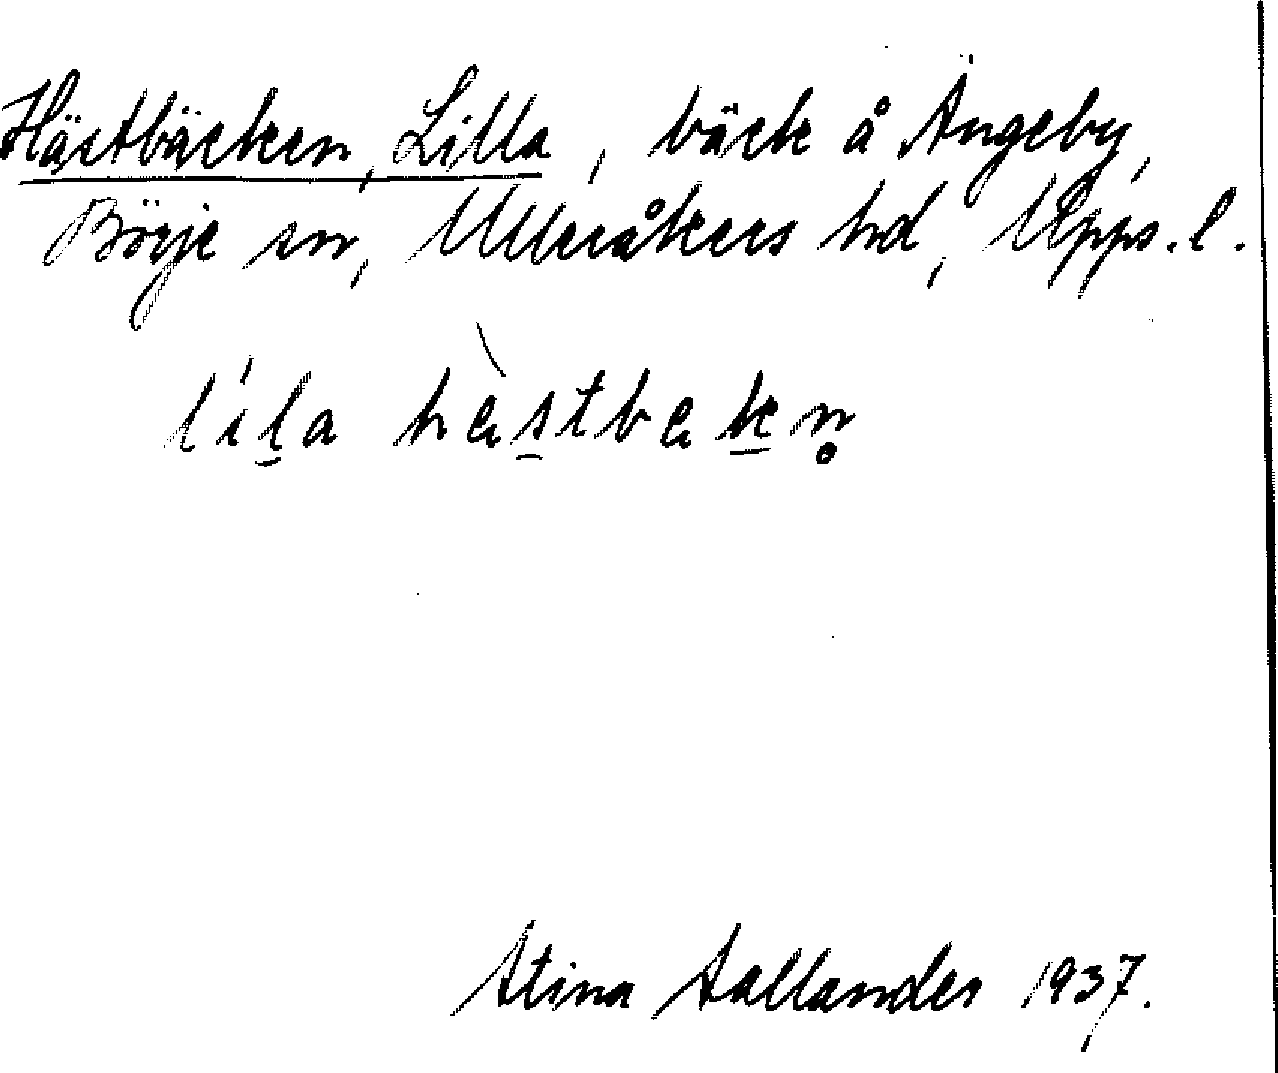 Hästbäcken, Lilla, bäck å Ängeby,
Börje sn, Ulleråkers hd, Upps. l.
lila hèstbekn̥
Stina Sallander 1937.